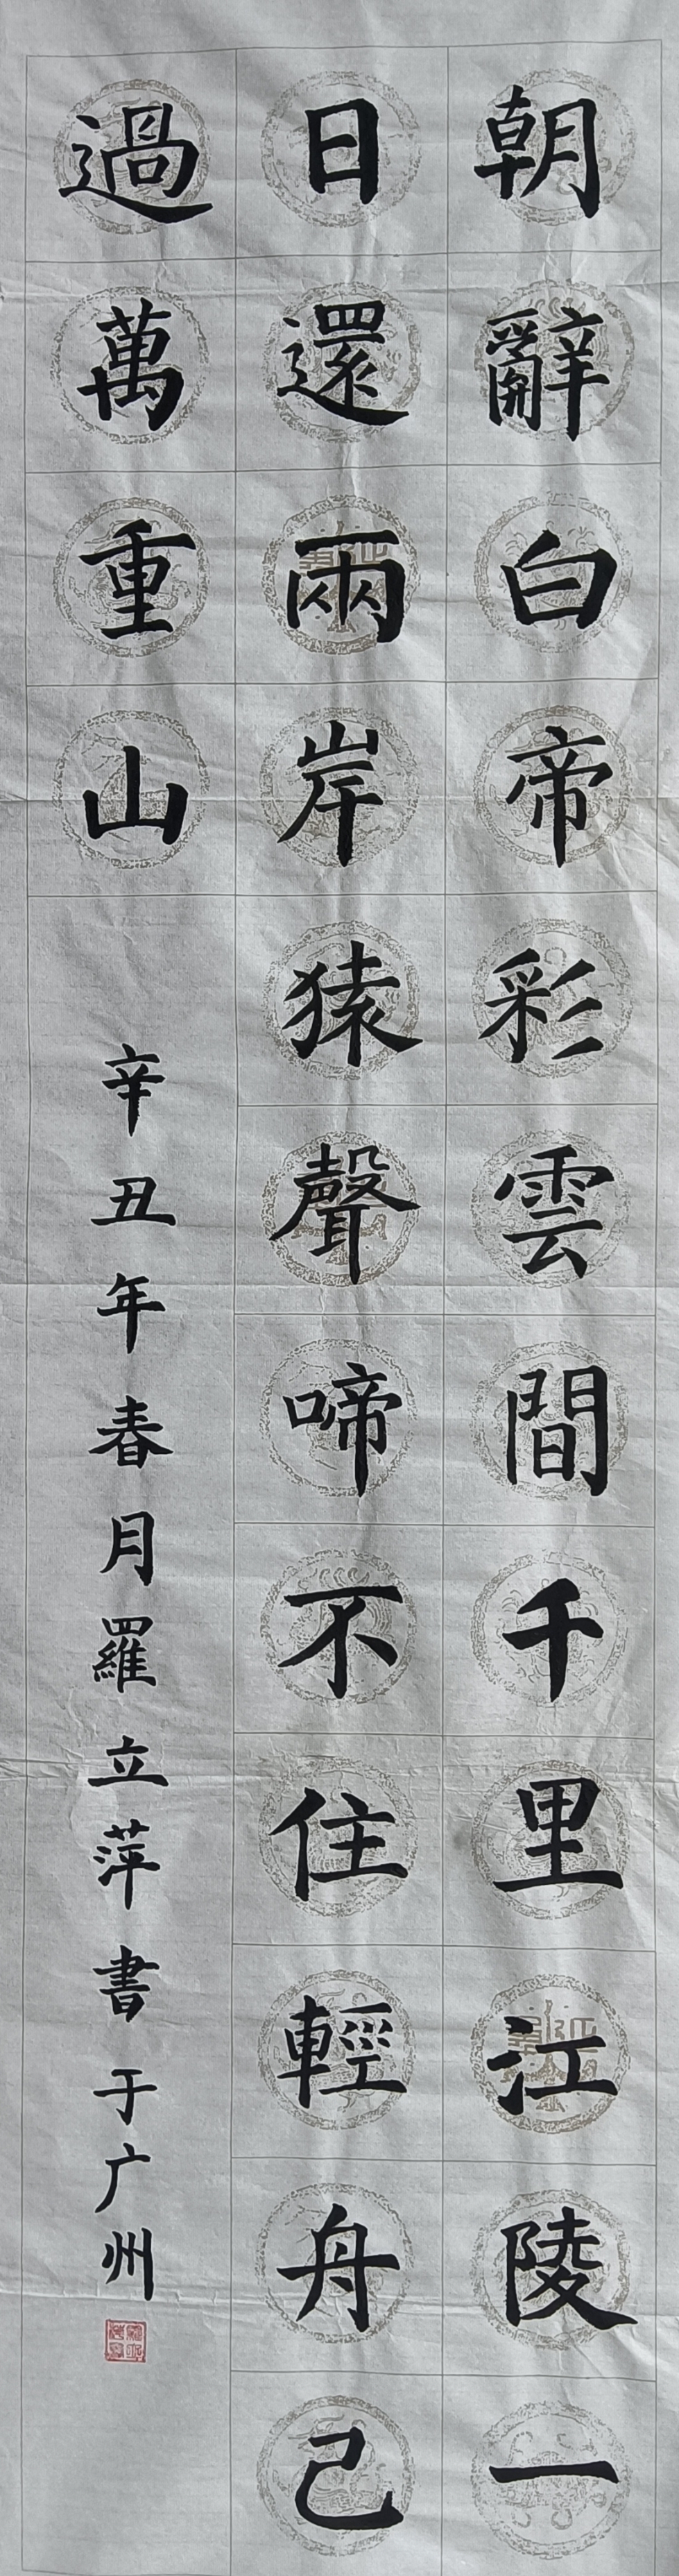 朝辭白帝彩雲間千里江陵一
日還兩岸猿聲啼不住輕舟己
過萬重山
辛丑年春月羅立萍書于广州